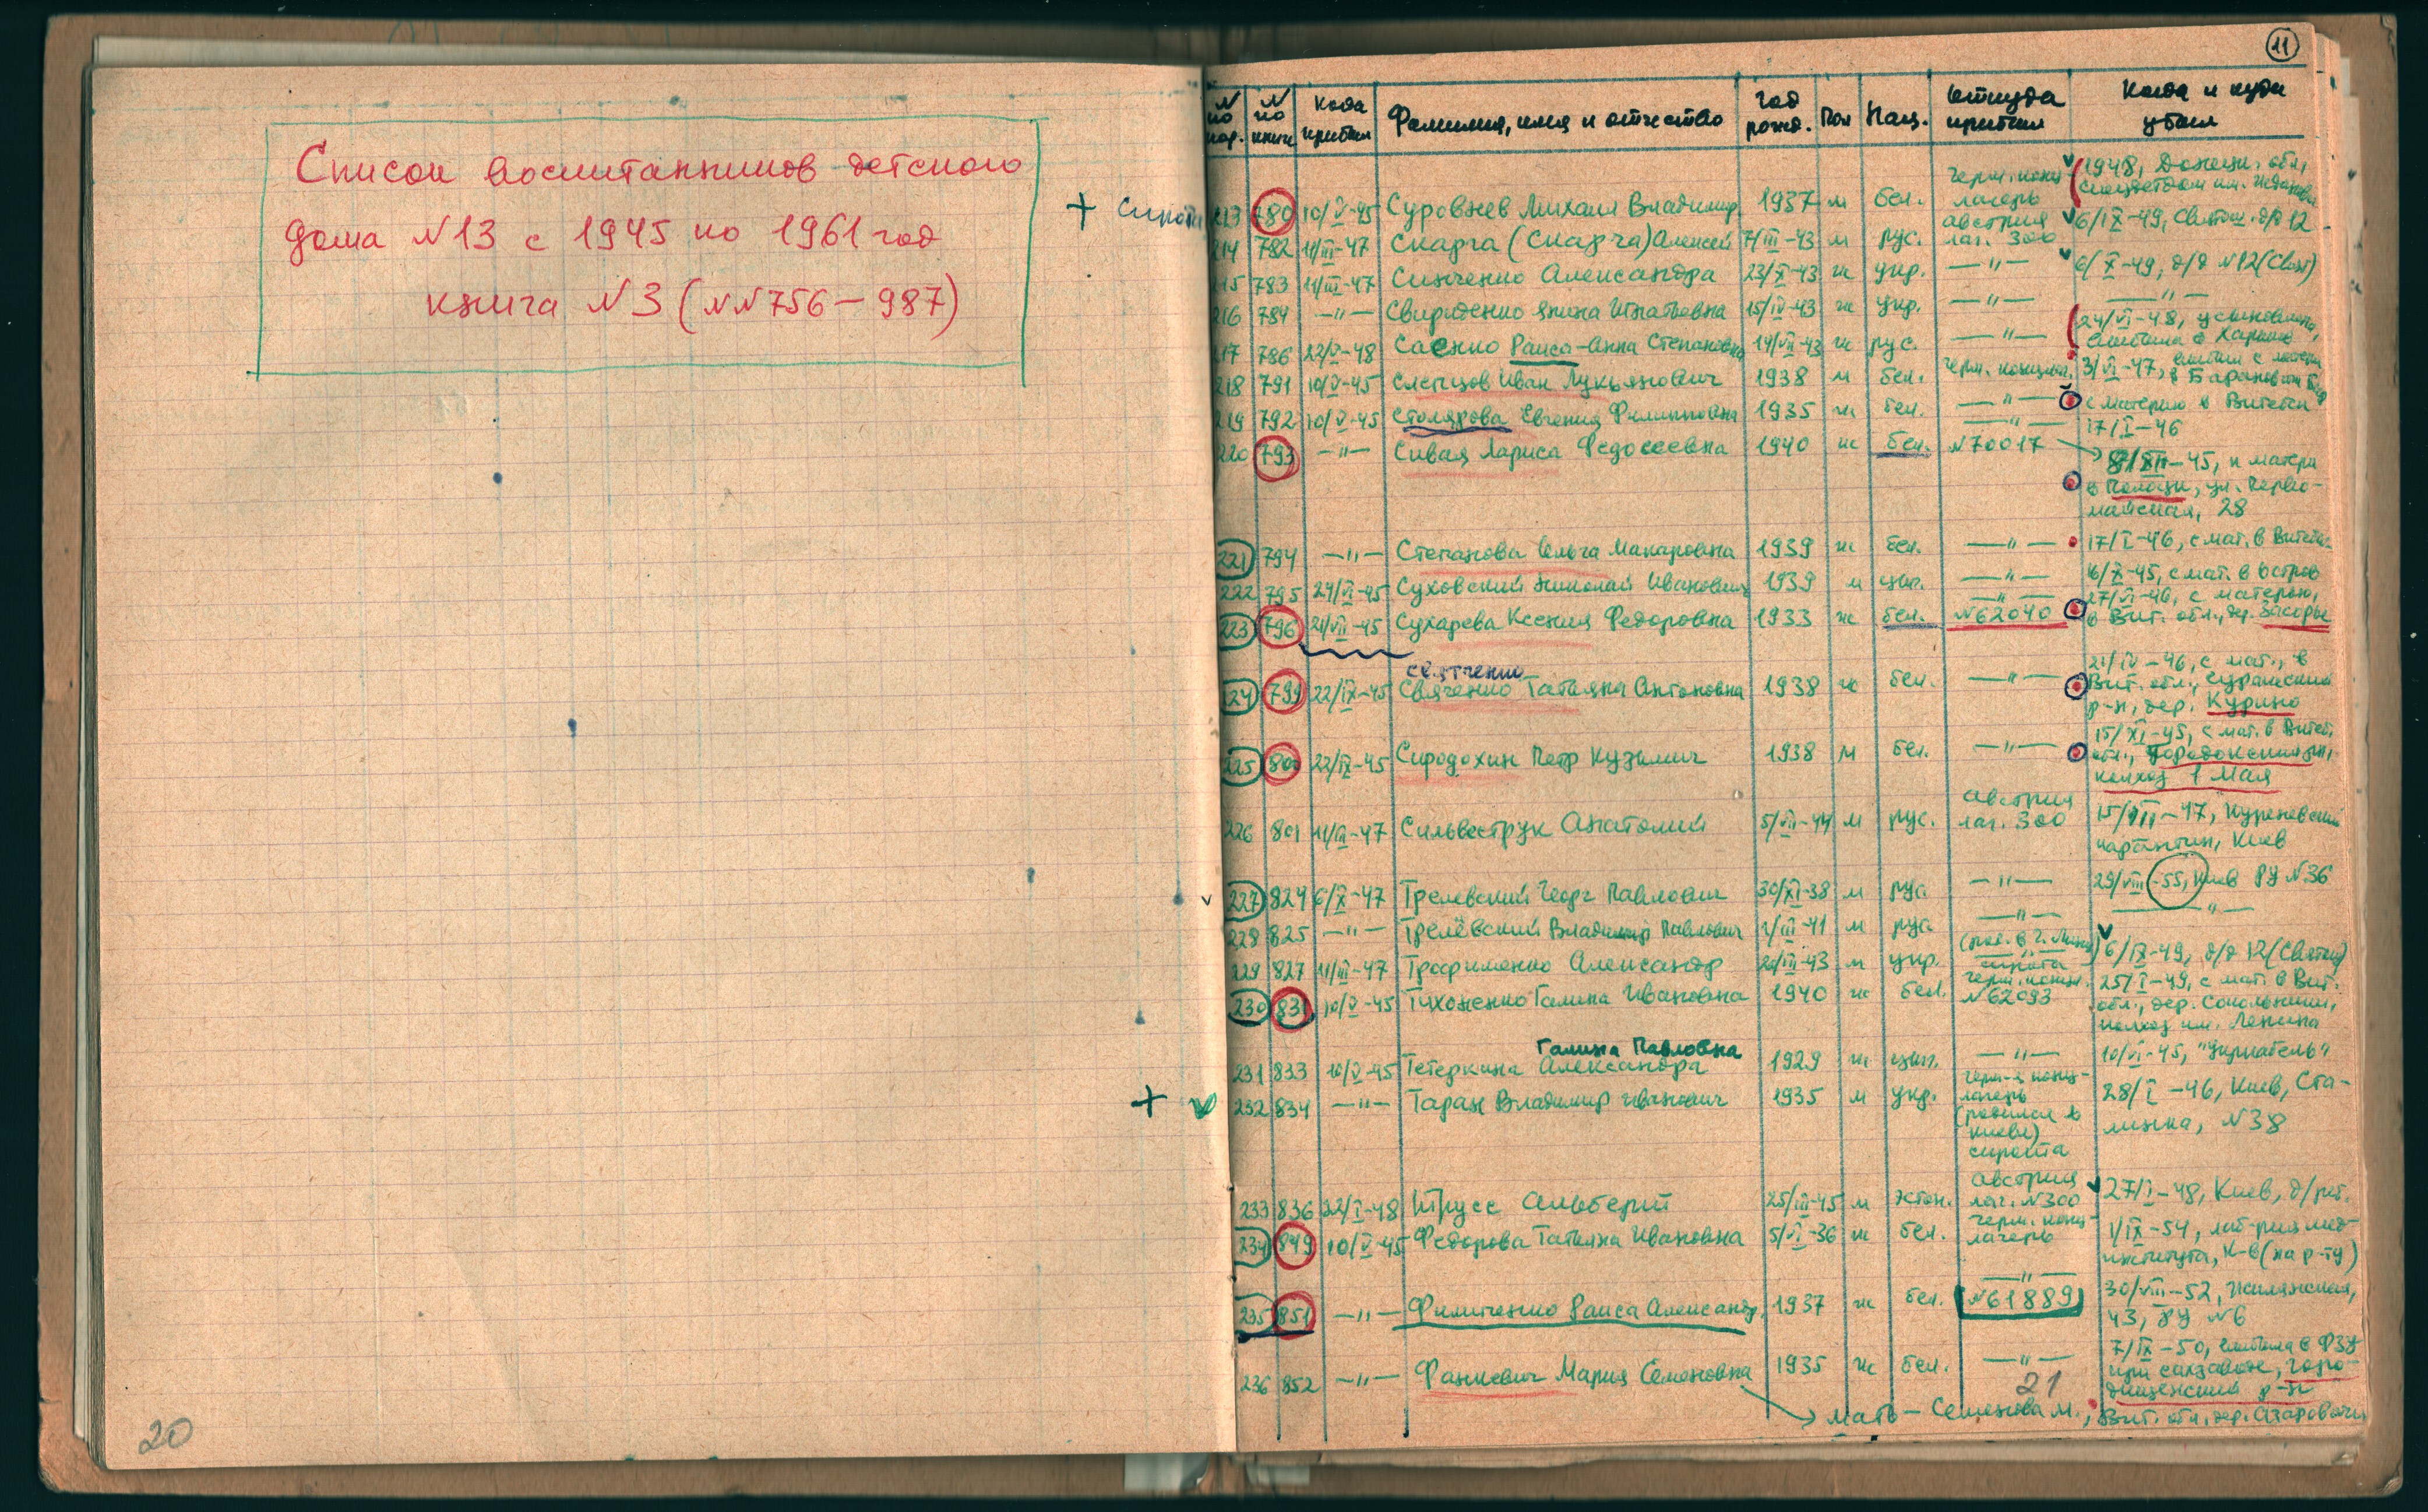 Список воспитанников детского
дома №13 с 1945 по 1961 год
книга №3 (№№756 – 987)
20
11
№ по пор. № по книге Когда прибыл Фамилия, имя и отчество Год рожд. Пол Нац. Откуда прибыл Когда и куда убыл
+ сирота 213 780 10/V-45 Суровнев Михаил Владимир. 1937 м бел. герм. конц. лагерь 1948, Донецк. обл., спецдетдом им. Жданова
214 782 11/III-47 Скарга (Скарча) Алексей 7/III-43 м рус. австрия лаг. 300 6/IX-49, Святош. д/д 12
215 783 11/III-47 Синченко Александра 23/X-43 ж укр. —"— 6/X-49, д/д №12 (Свят)
216 784 —"— Свириденко Янина Игнатьевна 15/IV-43 ж укр. —"— —"—
217 786 22/V-48 Саенко Раиса-Анна Степановна 14/VII-43 ж рус. —"— 24/VI-48, усыновлена,
218 791 10/V-45 Слепцов Иван Лукьянович 1938 м бел. герм. концлаг. 3/VI-47, выбыл с матерью в Баранович.
219 792 10/V-45 Столярова Евгения Филипповна 1935 ж бел. —"— с матерью в Витебск 17/I-46
220 793 —"— Сивая Лариса Федосеевна 1940 ж бел. —"— №70017 8/XII-45, к матери
в Полоцк, ул. Перво-
майская, 28
221 794 —"— Степанова Ольга Макаровна 1939 ж бел. —"— 17/I-46, с мат. в Витебск
222 795 24/VI-45 Суховский Николай Иванович 1939 м цыг. —"— 16/X-45, с мат. в Остров
223 796 21/VII-45 Сухарева Ксения Федоровна 1933 ж бел. —"— №62040 27/VI-46, с матерью,
в Вит. обл., дер. Засорье
Святченко
224 799 22/IX-45 Свяченко Татьяна Антоновна 1938 ж бел. —"— 21/IV-46, с мат., в
Вит. обл., Суражский
р-н, дер. Курино
225 800 22/IX-45 Сиродохин Петр Кузьмич 1938 м бел. —"— 15/XI-45, с мат. в Витеб.
обл., Городокский р-н,
колхоз 1 Мая
226 801 11/III-47 Сильвеструк Анатолий 5/VII-44 м рус. австрия лаг. 300 15/VII-47, Куреневский
карантин, Киев
227 824 6/X-47 Трелевский Георг Павлович 30/XI-38 м рус. —"— 29/VIII-55, Киев РУ №36
228 825 —"— Трелёвский Владимир Павлович 1/III-41 м рус. —"— —"—
229 827 11/III-47 Трофименко Александр 20/III-43 м укр. сирота 6/IX-49, д/д 12 (Святош)
230 831 10/V-45 Тихоненко Галина Ивановна 1940 ж бел. герм. конц. №62093 25/I-49, с мат. в Вит.
обл., дер. Сокольники,
колхоз им. Ленина
Галина Павловна
231 833 10/V-45 Тетеркина Александра 1929 ж цыг. —"— 10/VI-45, "Укркабель"
+ 232 834 —"— Таран Владимир Иванович 1935 м укр. герм-й конц-лагерь (родился в Киеве) сирота 28/I-46, Киев, Ста-
линка, №38
233 836 22/I-48 Трусс Альберт 25/III-45 м эстон. австрия лаг. №300 27/I-48, Киев, д/рев.
234 849 10/V-45 Федорова Татьяна Ивановна 5/VI-36 ж бел. герм. конц-лагерь 1/IX-54, лаб-рия мед-
института, К-в (на р-ту)
235 851 —"— Филипченко Раиса Александр. 1937 ж бел. —"— №61889 30/VIII-52, Жилянская,
43, РУ №6
236 852 —"— Фанкевич Мария Семеновна 1935 ж бел. —"— 7/IX-50, выбыла в ФЗУ
при сахзаводе, Горо-
дищенский р-н
мать – Семенова М., Вит. обл., дер. Азаровичи
21